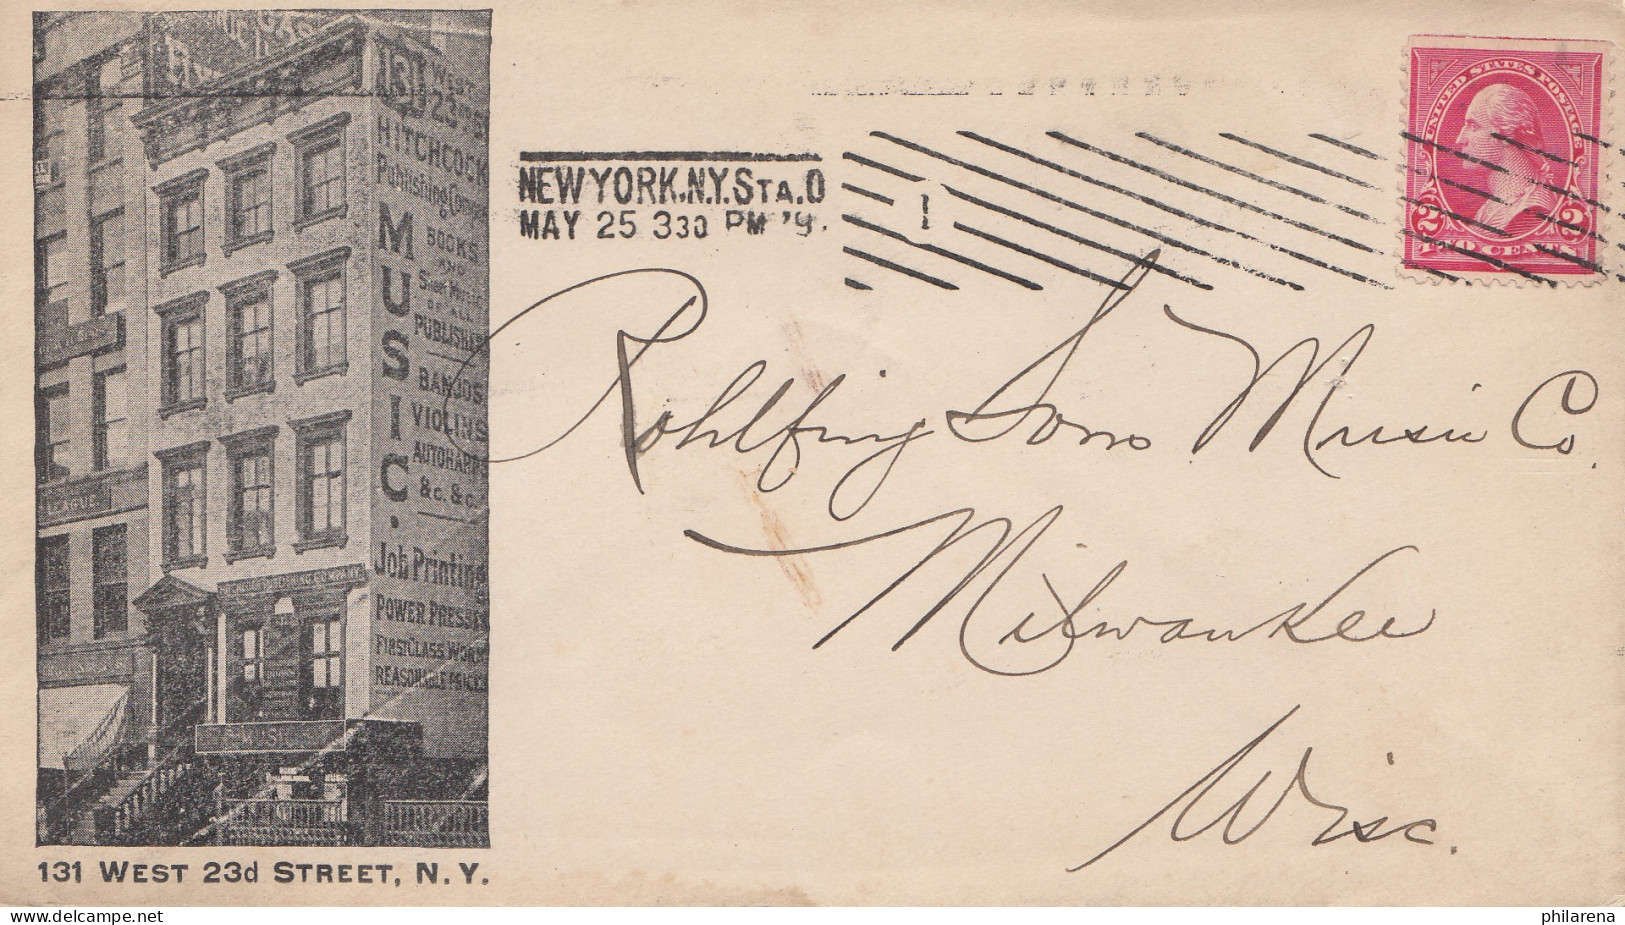 131 WEST
23RD S
HITCHCOCK
Publishing Company
MUSIC.
BOOKS
AND
SHEET MUSIC
OF ALL
PUBLISHERS
BANJOS
VIOLINS
AUTOHARPS
&c. &c.
Job Printing
POWER PRESSES
FIRST CLASS WORK
REASONABLE PRICES
LEAGUE
MUSIC
131 WEST 23d STREET, N. Y.
NEW YORK, N.Y. STA. O
MAY 25 3 30 PM '9.
1
UNITED STATES POSTAGE
2 TWO CENTS 2
Rohlfing Sons Music Co.
Milwaukee
Wisc.
philarena